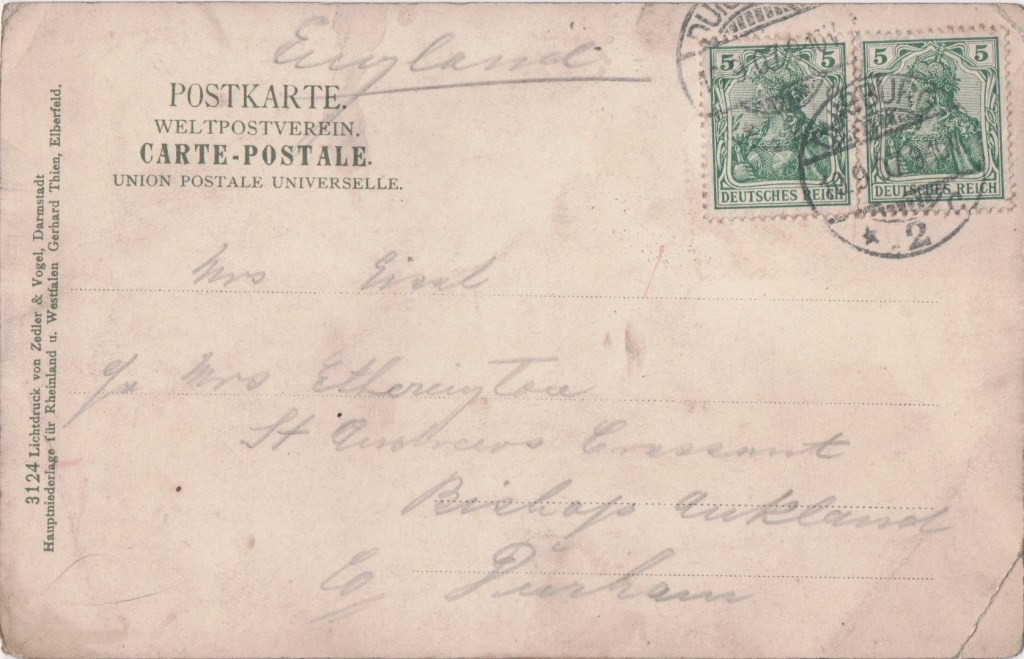 England
POSTKARTE.
WELTPOSTVEREIN.
CARTE-POSTALE.
UNION POSTALE UNIVERSELLE.
5 5 5 5
DEUTSCHES REICH DEUTSCHES REICH
* 2
Mrs Eisal
c/o Mrs Etherington
St Andrews Cressant
Bishop Aukland
Co Durham
3124 Lichtdruck von Zedler & Vogel, Darmstadt
Hauptniederlage für Rheinland u. Westfalen Gerhard Thien, Elberfeld.